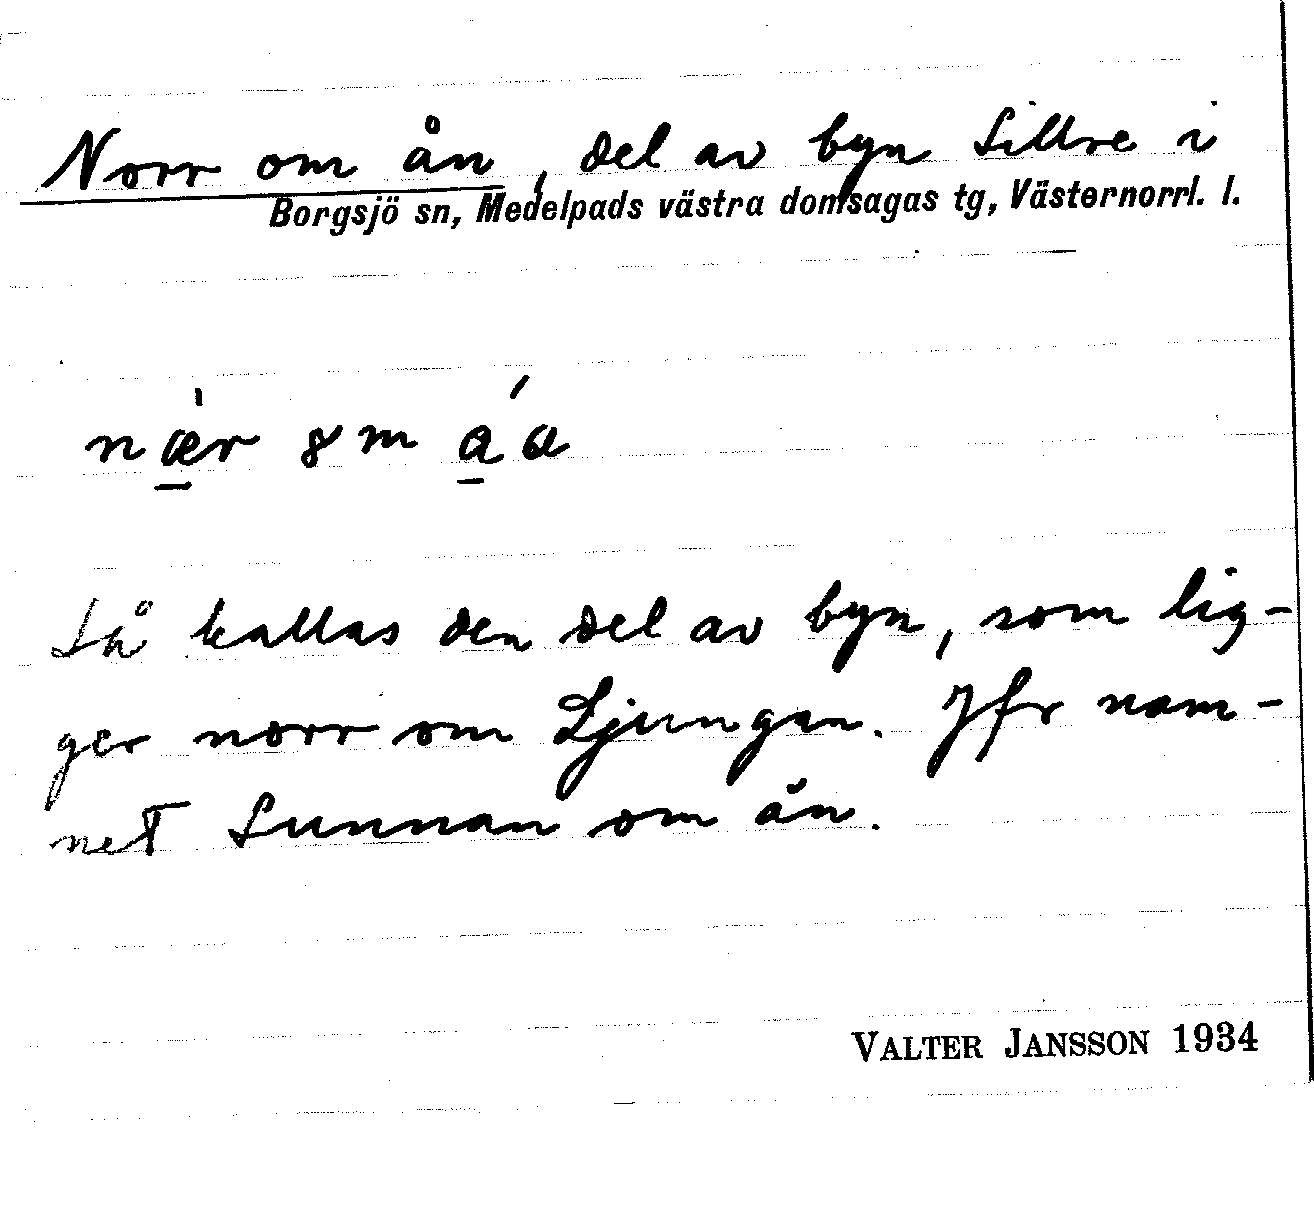 Norr om ån, del av byn Sillre i
Borgsjö sn, Medelpads västra domsagas tg, Västernorrl. l.
nær 8m aa
Så kallas den del av byn, som lig-
ger norr om Ljungan. Jfr nam-
net Sunnan om ån.
VALTER JANSSON 1934